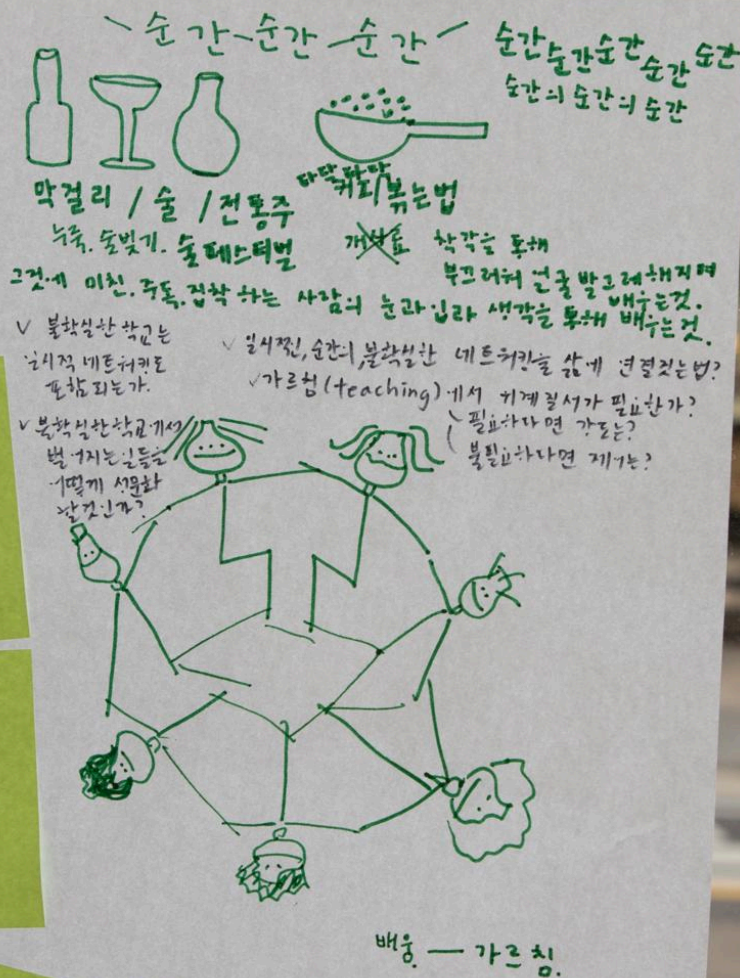 순간-순간-순간
순간순간순간순간순간
순간의 순간의 순간
막걸리 / 술 / 전통주
누룩. 술빚기. 술페스티벌
타닥타닥
커피/볶는법
착각을 통해
부끄러워 얼굴 발그레해지며
배우는것.
그것에 미친. 중독. 집착하는 사람의 눈과입과 생각을 통해 배우는것.
v 불확실한 학교는
일시적 네트워킹도
포함되는가.
v 일시적인, 순간의, 불확실한 네트워킹을 삶에 연결짓는법?
v 가르침(teaching)에서 위계질서가 필요한가?
필요하다면 강도는?
불필요하다면 제어는?
v 불확실한학교에서
벌어지는일들을
어떻게 성문화
할것인가?
배움. — 가르침.